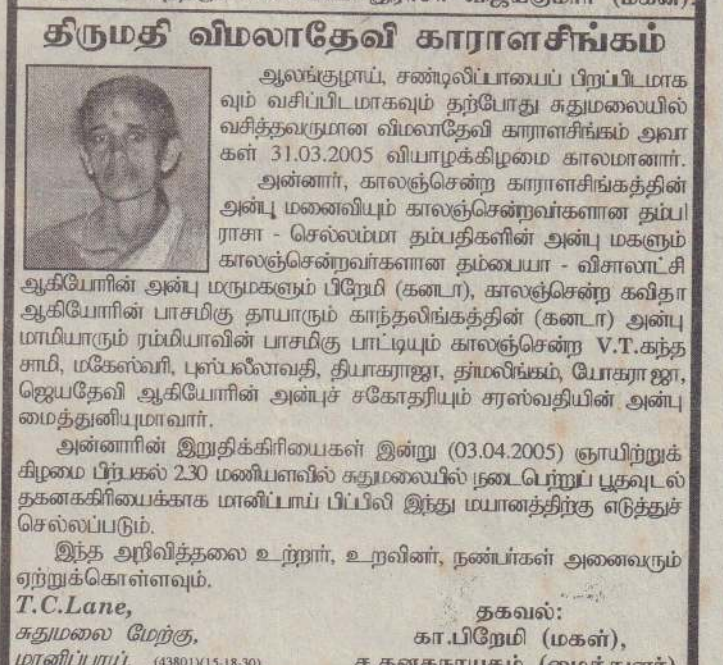 திருமதி விமலாதேவி காராளசிங்கம்
ஆலங்குழாய், சண்டிலிப்பாயைப் பிறப்பிடமாக
வும் வசிப்பிடமாகவும் தற்போது சுதுமலையில்
வசித்தவருமான விமலாதேவி காராளசிங்கம் அவர்
கள் 31.03.2005 வியாழக்கிழமை காலமானார்.
அன்னார், காலஞ்சென்ற காராளசிங்கத்தின்
அன்பு மனைவியும் காலஞ்சென்றவர்களான தம்பி
ராசா - செல்லம்மா தம்பதிகளின் அன்பு மகளும்
காலஞ்சென்றவர்களான தம்பையா - விசாலாட்சி
ஆகியோரின் அன்பு மருமகளும் பிறேமி (கனடா), காலஞ்சென்ற கவிதா
ஆகியோரின் பாசமிகு தாயாரும் காந்தலிங்கத்தின் (கனடா) அன்பு
மாமியாரும் ரம்மியாவின் பாசமிகு பாட்டியும் காலஞ்சென்ற V.T.கந்த
சாமி, மகேஸ்வரி, புஸ்பலீலாவதி, தியாகராஜா, தர்மலிங்கம், யோகராஜா,
ஜெயதேவி ஆகியோரின் அன்புச் சகோதரியும் சரஸ்வதியின் அன்பு
மைத்துனியுமாவார்.
அன்னாரின் இறுதிக்கிரியைகள் இன்று (03.04.2005) ஞாயிற்றுக்
கிழமை பிற்பகல் 2.30 மணியளவில் சுதுமலையில் நடைபெற்றுப் பூதவுடல்
தகனககிரியைக்காக மானிப்பாய் பிப்பிலி இந்து மயானத்திற்கு எடுத்துச்
செல்லப்படும்.
இந்த அறிவித்தலை உற்றார், உறவினர், நண்பர்கள் அனைவரும்
ஏற்றுக்கொள்ளவும்.
T.C.Lane,
சுதுமலை மேற்கு,
மானிப்பாய். (43801)(15-18-30)
தகவல்:
கா.பிறேமி (மகள்),